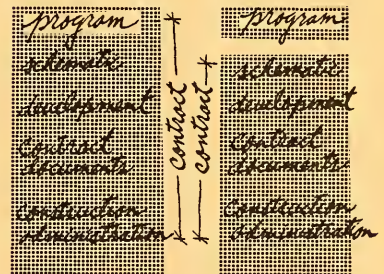 program
schematic
development
contract
documents
construction
administration
contract
contract
program
schematic
development
contract
documents
construction
administration